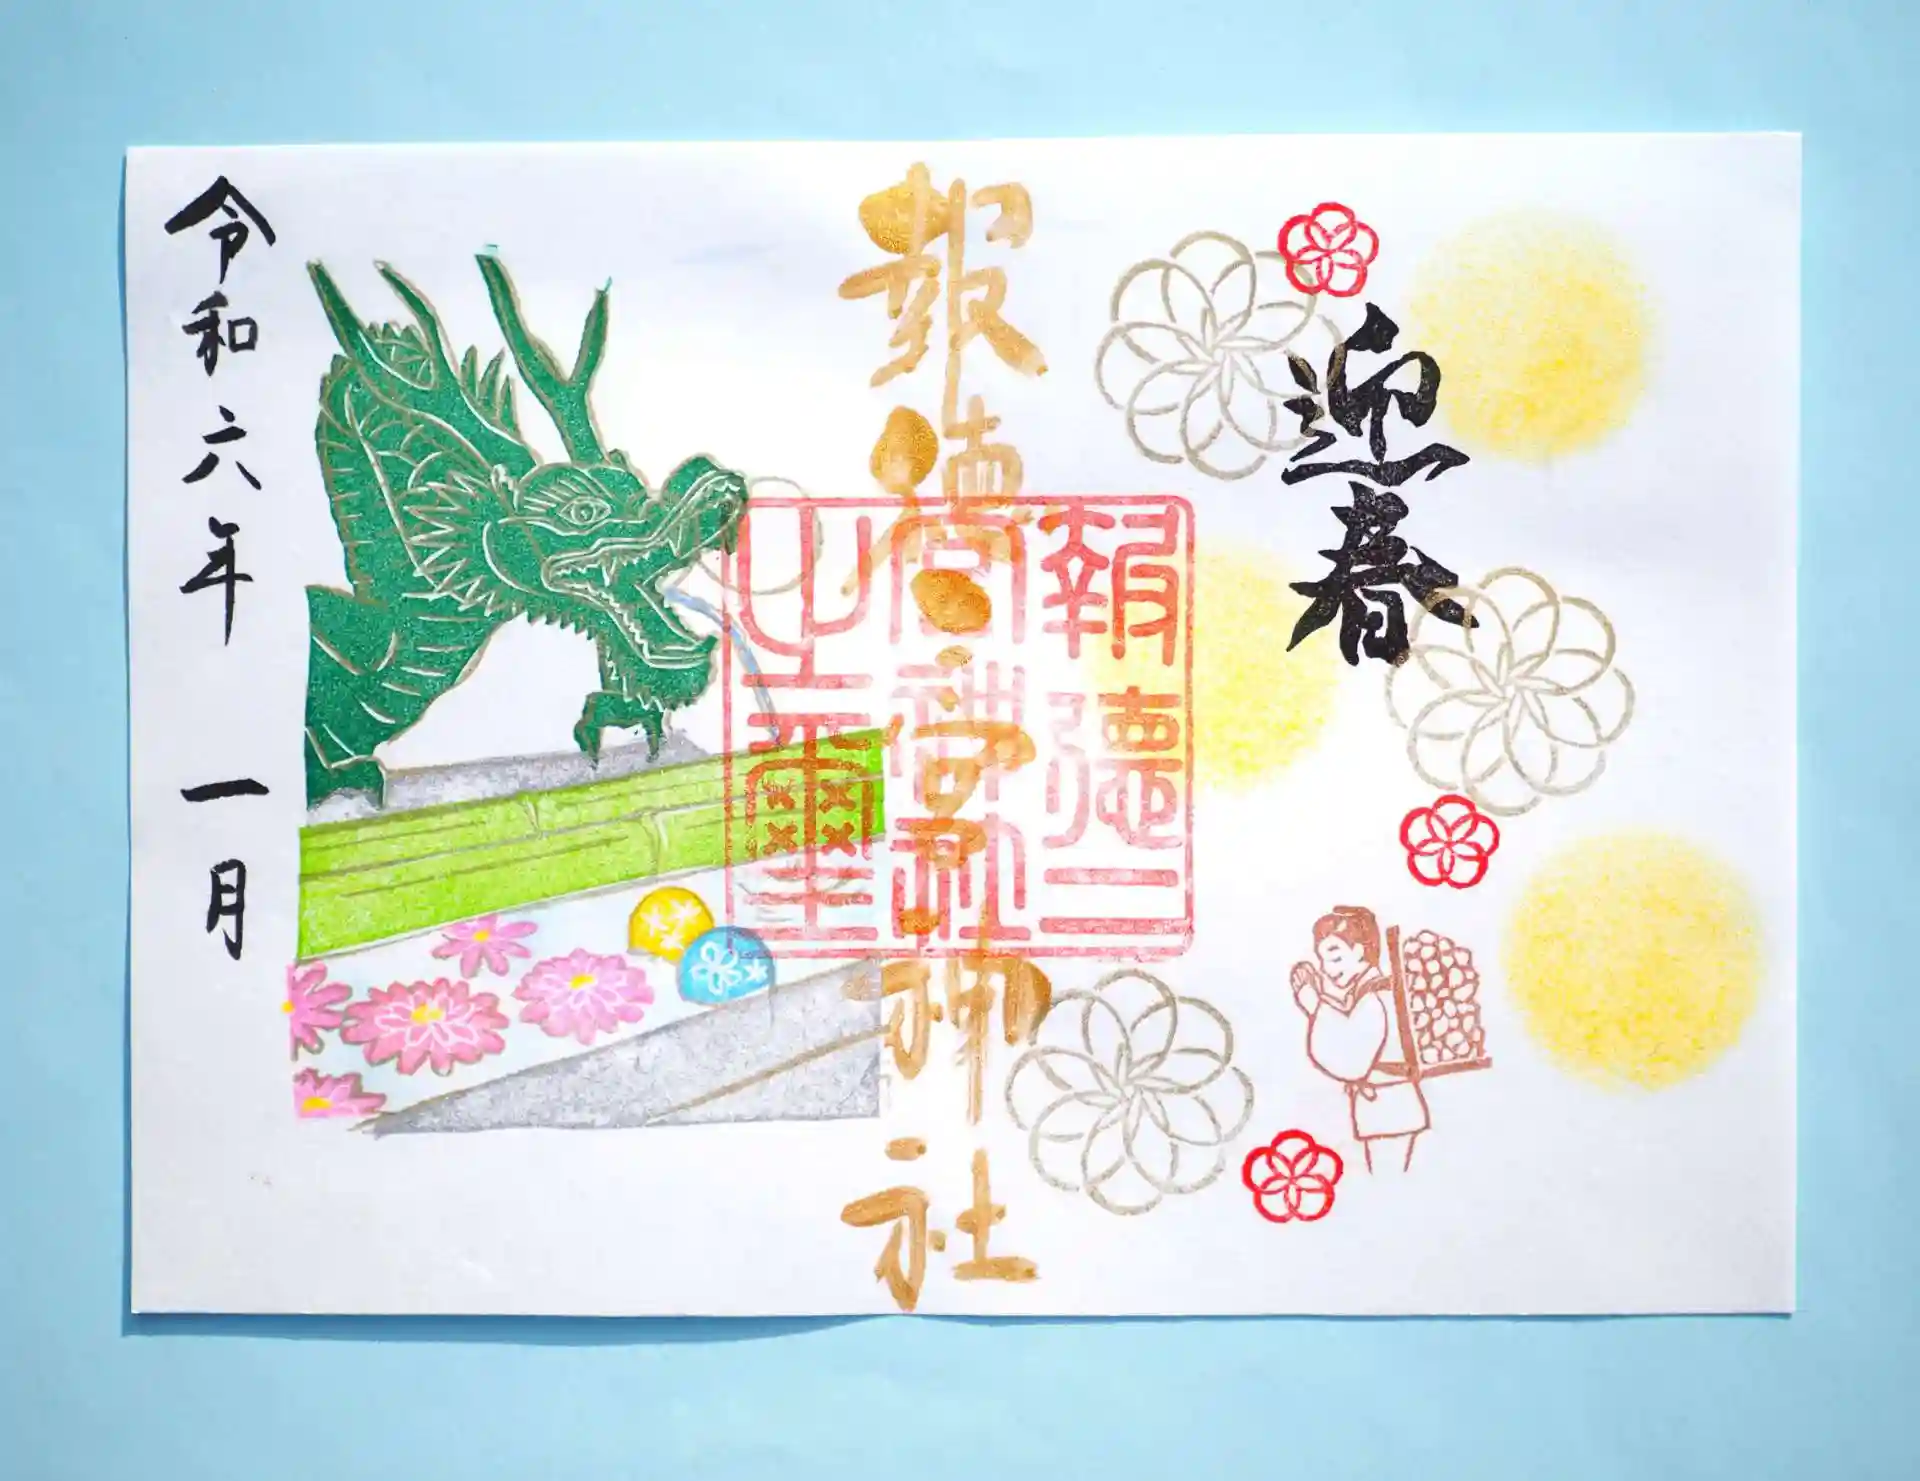 迎春
報徳二宮神社
報徳二
宮神社
之璽
令和六年 一月